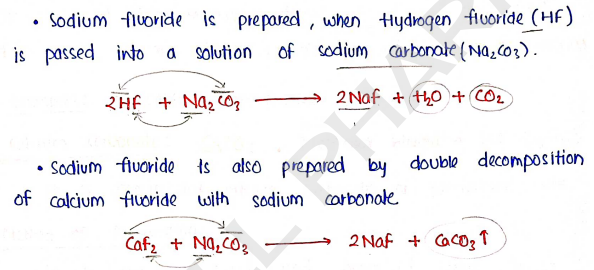 • Sodium fluoride is prepared, when Hydrogen fluoride (HF)
is passed into a solution of sodium carbonate (Na₂CO₃).
2Hf + Na₂CO₃ ⟶ 2Naf + H₂O + CO₂
• Sodium fluoride is also prepared by double decomposition
of calcium fluoride with sodium carbonate
Caf₂ + Na₂CO₃ ⟶ 2Naf + CaCO₃↑